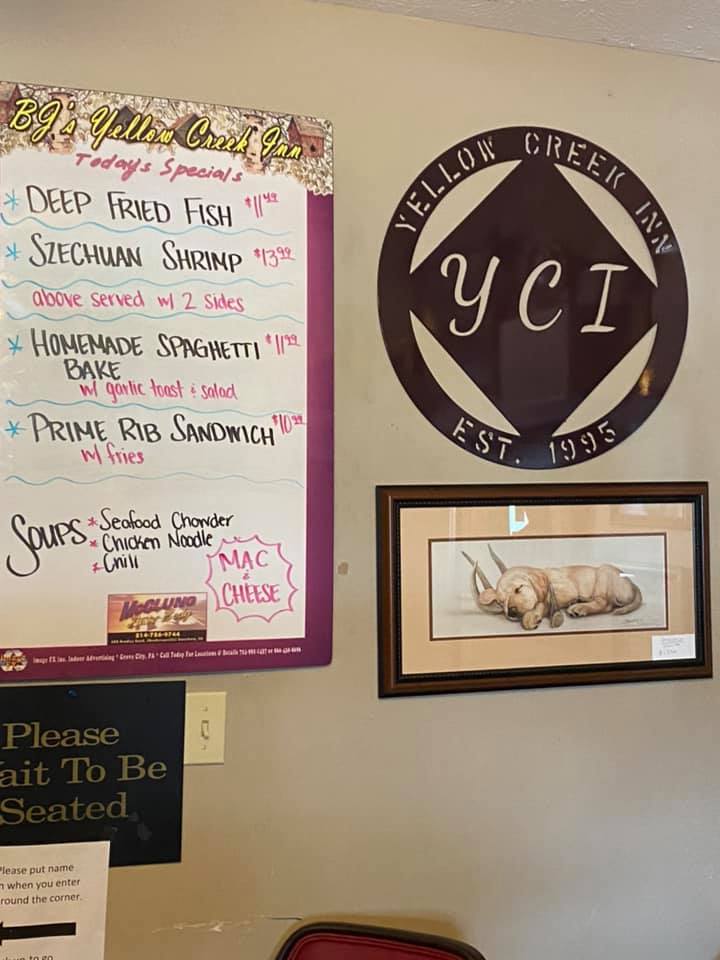 BJ's Yellow Creek Inn
Today's Specials
* DEEP FRIED FISH $11.49
* SZECHUAN SHRIMP $13.99
above served w/ 2 sides
* HOMEMADE SPAGHETTI $11.99
BAKE
w/ garlic toast & salad
* PRIME RIB SANDWICH $10.99
w/ fries
SOUPS * Seafood Chowder
* Chicken Noodle
* Chili
MAC
&
CHEESE
McCLUNG
814-786-9744
Image FX Inc. Indoor Advertising * Grove City, PA * Call Today For Locations & Details
YELLOW CREEK INN
YCI
EST. 1995
Please
ait To Be
Seated
Please put name
n when you enter
round the corner.